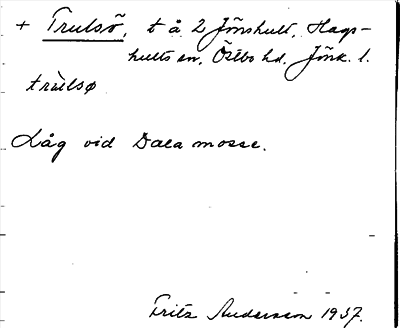 + Trulsö, t å 2 Jönshult, Hags-
hults sn, Östbo hd, Jönk. l.
trùlsø
Låg vid Dala mosse.
Fritz Andersson 1937.